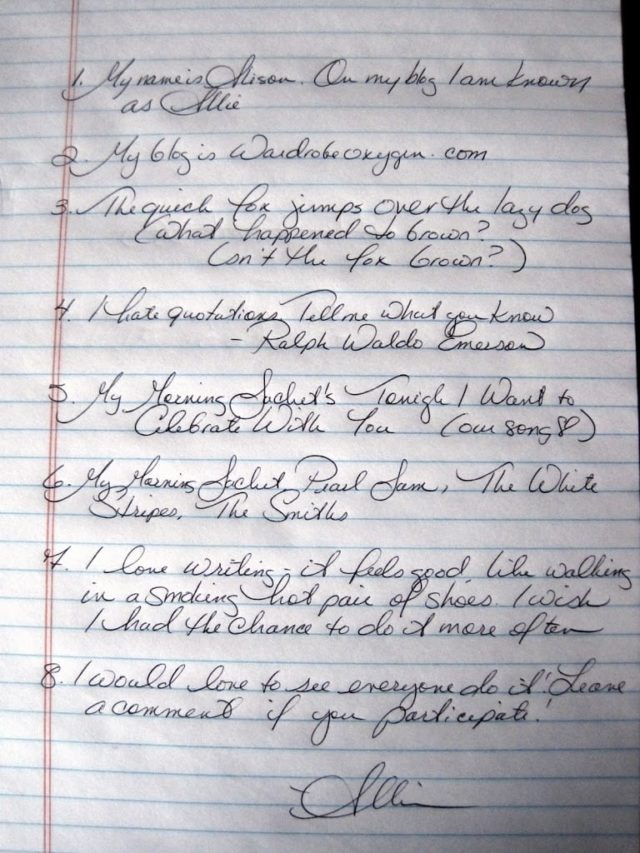 1. My name is Alison. On my blog I am known
as Allie
2. My blog is Wardrobeoxygen.com
3. The quick fox jumps over the lazy dog
(what happened to brown?
Isn't the fox brown?)
4. I hate quotations. Tell me what you know
- Ralph Waldo Emerson
5. My Morning Jacket's Tonigh I Want to
Celebrate With You (our song
6. My Morning Jacket, Pearl Jam, The White
Stripes, The Smiths
7. I love writing - it feels good like walking
in a smoking hot pair of shoes. I wish
I had the chance to do it more often
8. I would love to see everyone do it! Leave
a comment if you participate!
Allie